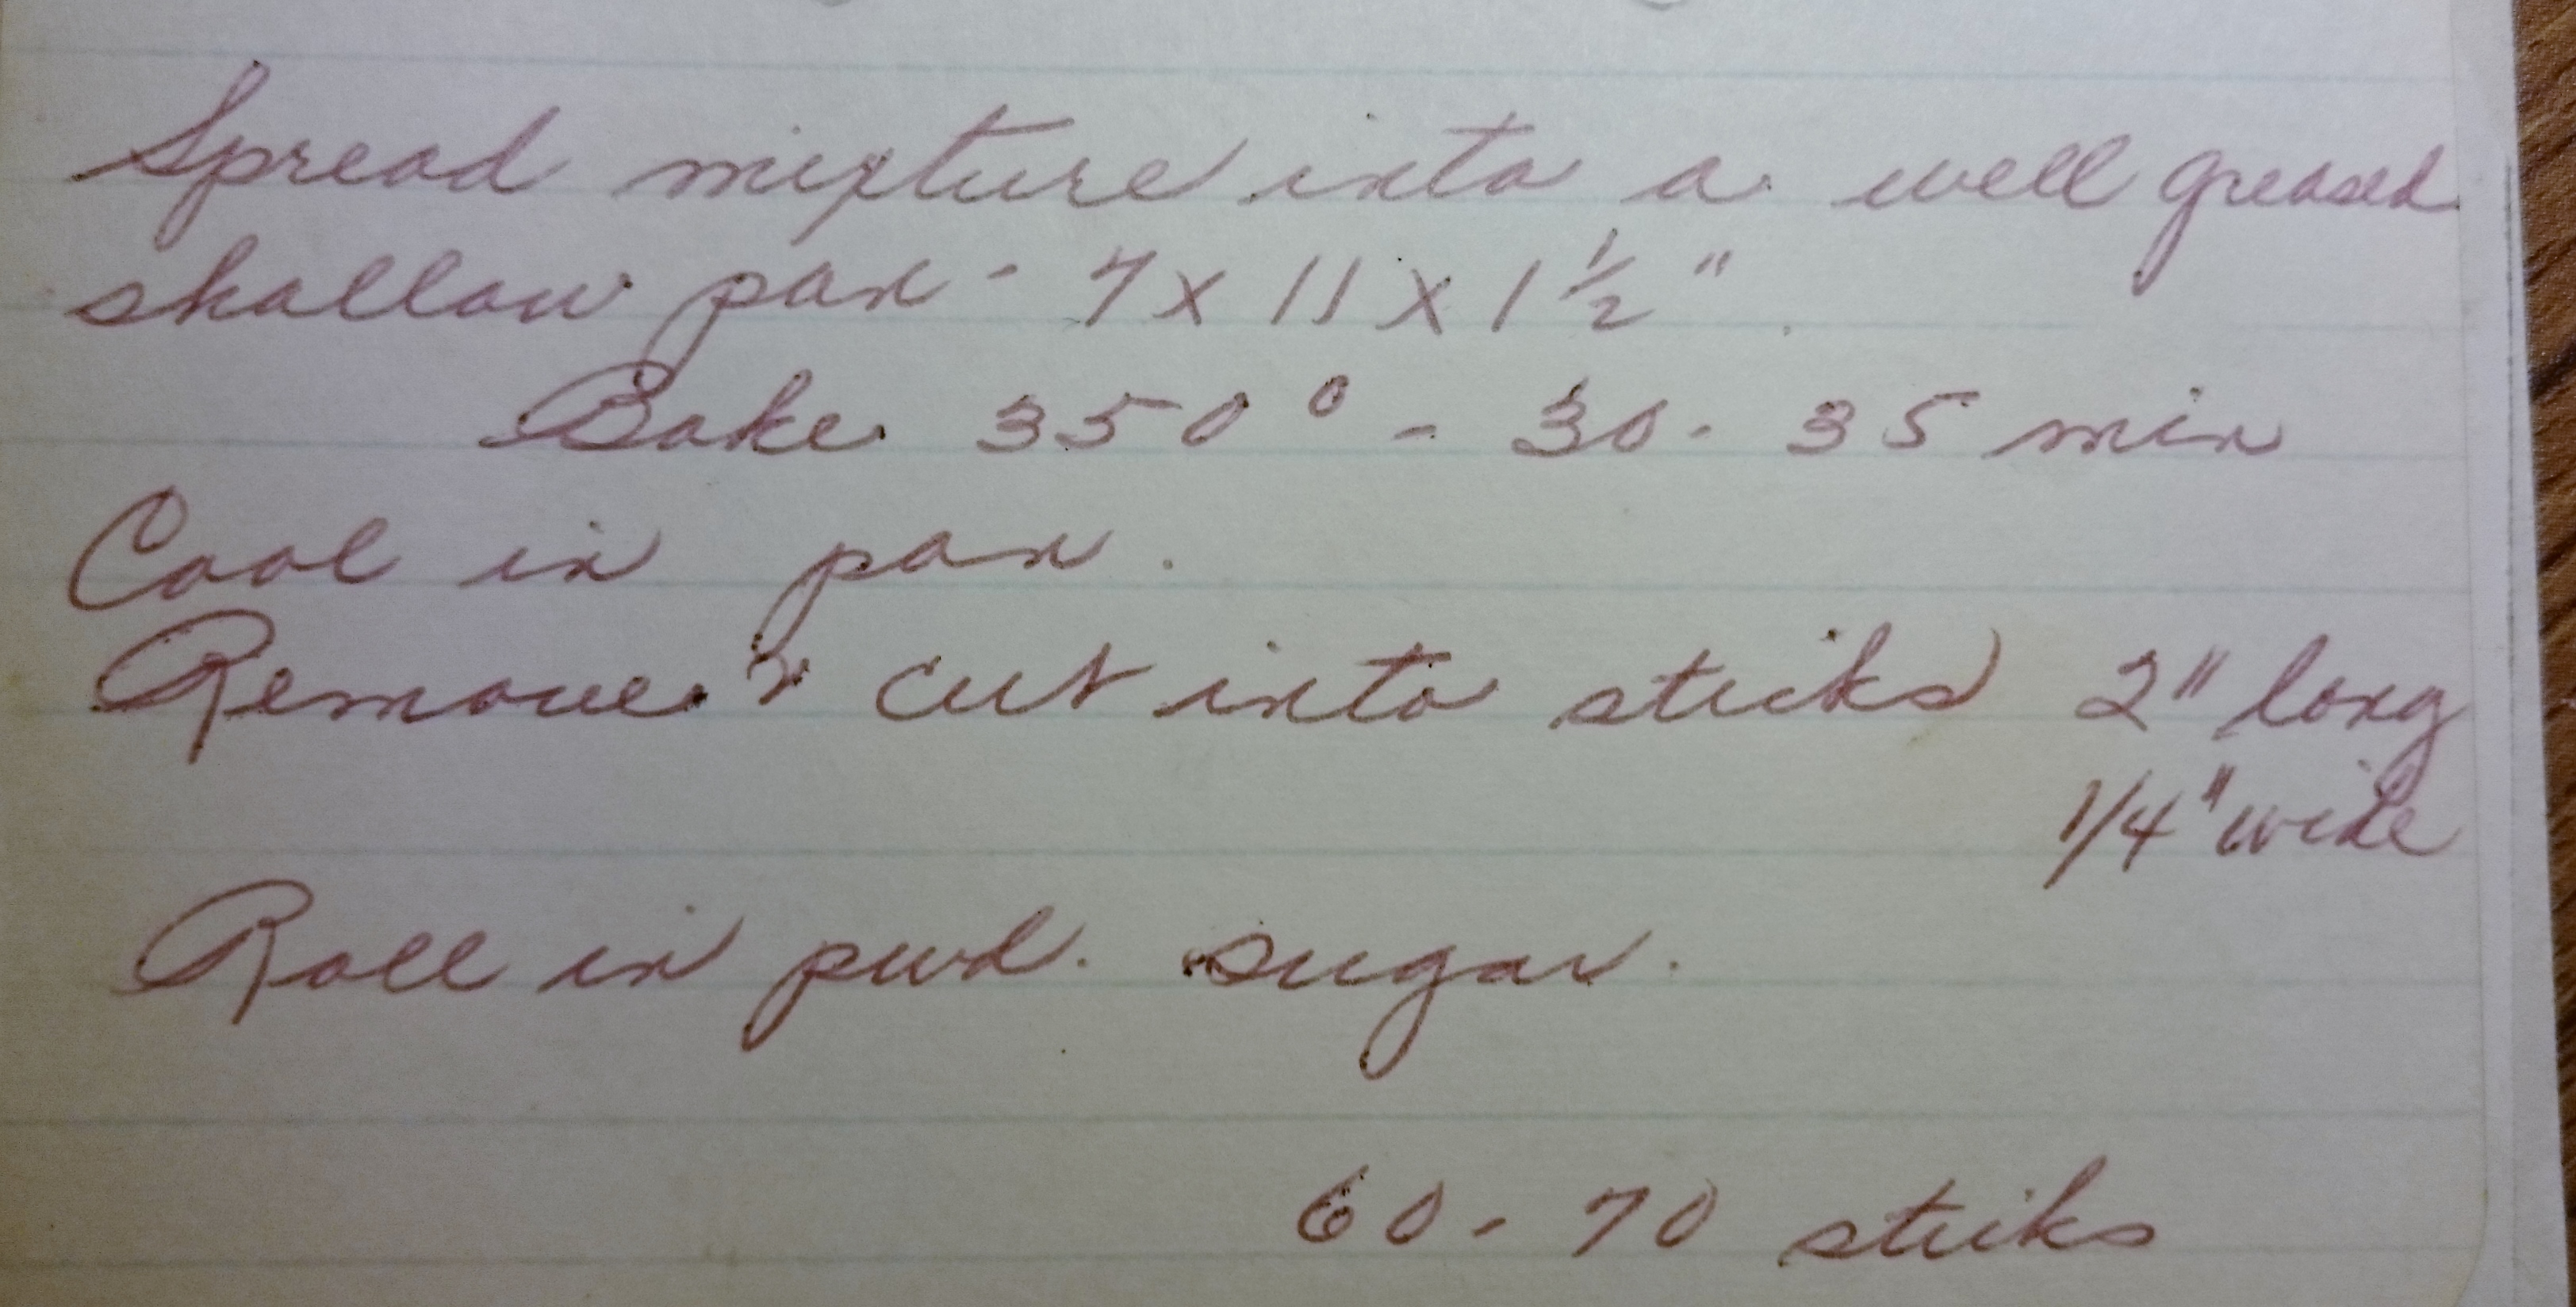 Spread mixture into a well greased
shallow pan - 7 x 11 x 1 1/2 "
Bake 350° - 30 - 35 min
Cool in pan.
Remove & cut into sticks 2" long
1/4" wide
Roll in pwd. sugar.
60 - 70 sticks